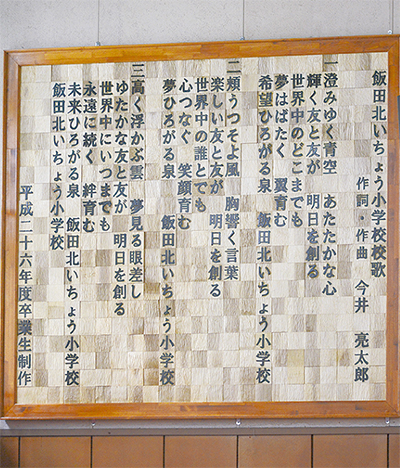 飯田北いちょう小学校校歌
作詞・作曲 今井 亮太郎
一 澄みゆく青空 あたたかな心
輝く友と友が 明日を創る
世界中のどこまでも
夢はばたく 翼育む
希望ひろがる泉 飯田北いちょう小学校
二 頬うつそよ風 胸響く言葉
楽しい友と友が 明日を創る
世界中の誰とでも
心つなぐ 笑顔育む
夢ひろがる泉 飯田北いちょう小学校
三 高く浮かぶ雲 夢見る眼差し
ゆたかな友と友が 明日を創る
世界中にいつまでも
永遠に続く 絆育む
未来ひろがる泉 飯田北いちょう小学校
飯田北いちょう小学校
平成二十六年度卒業生制作